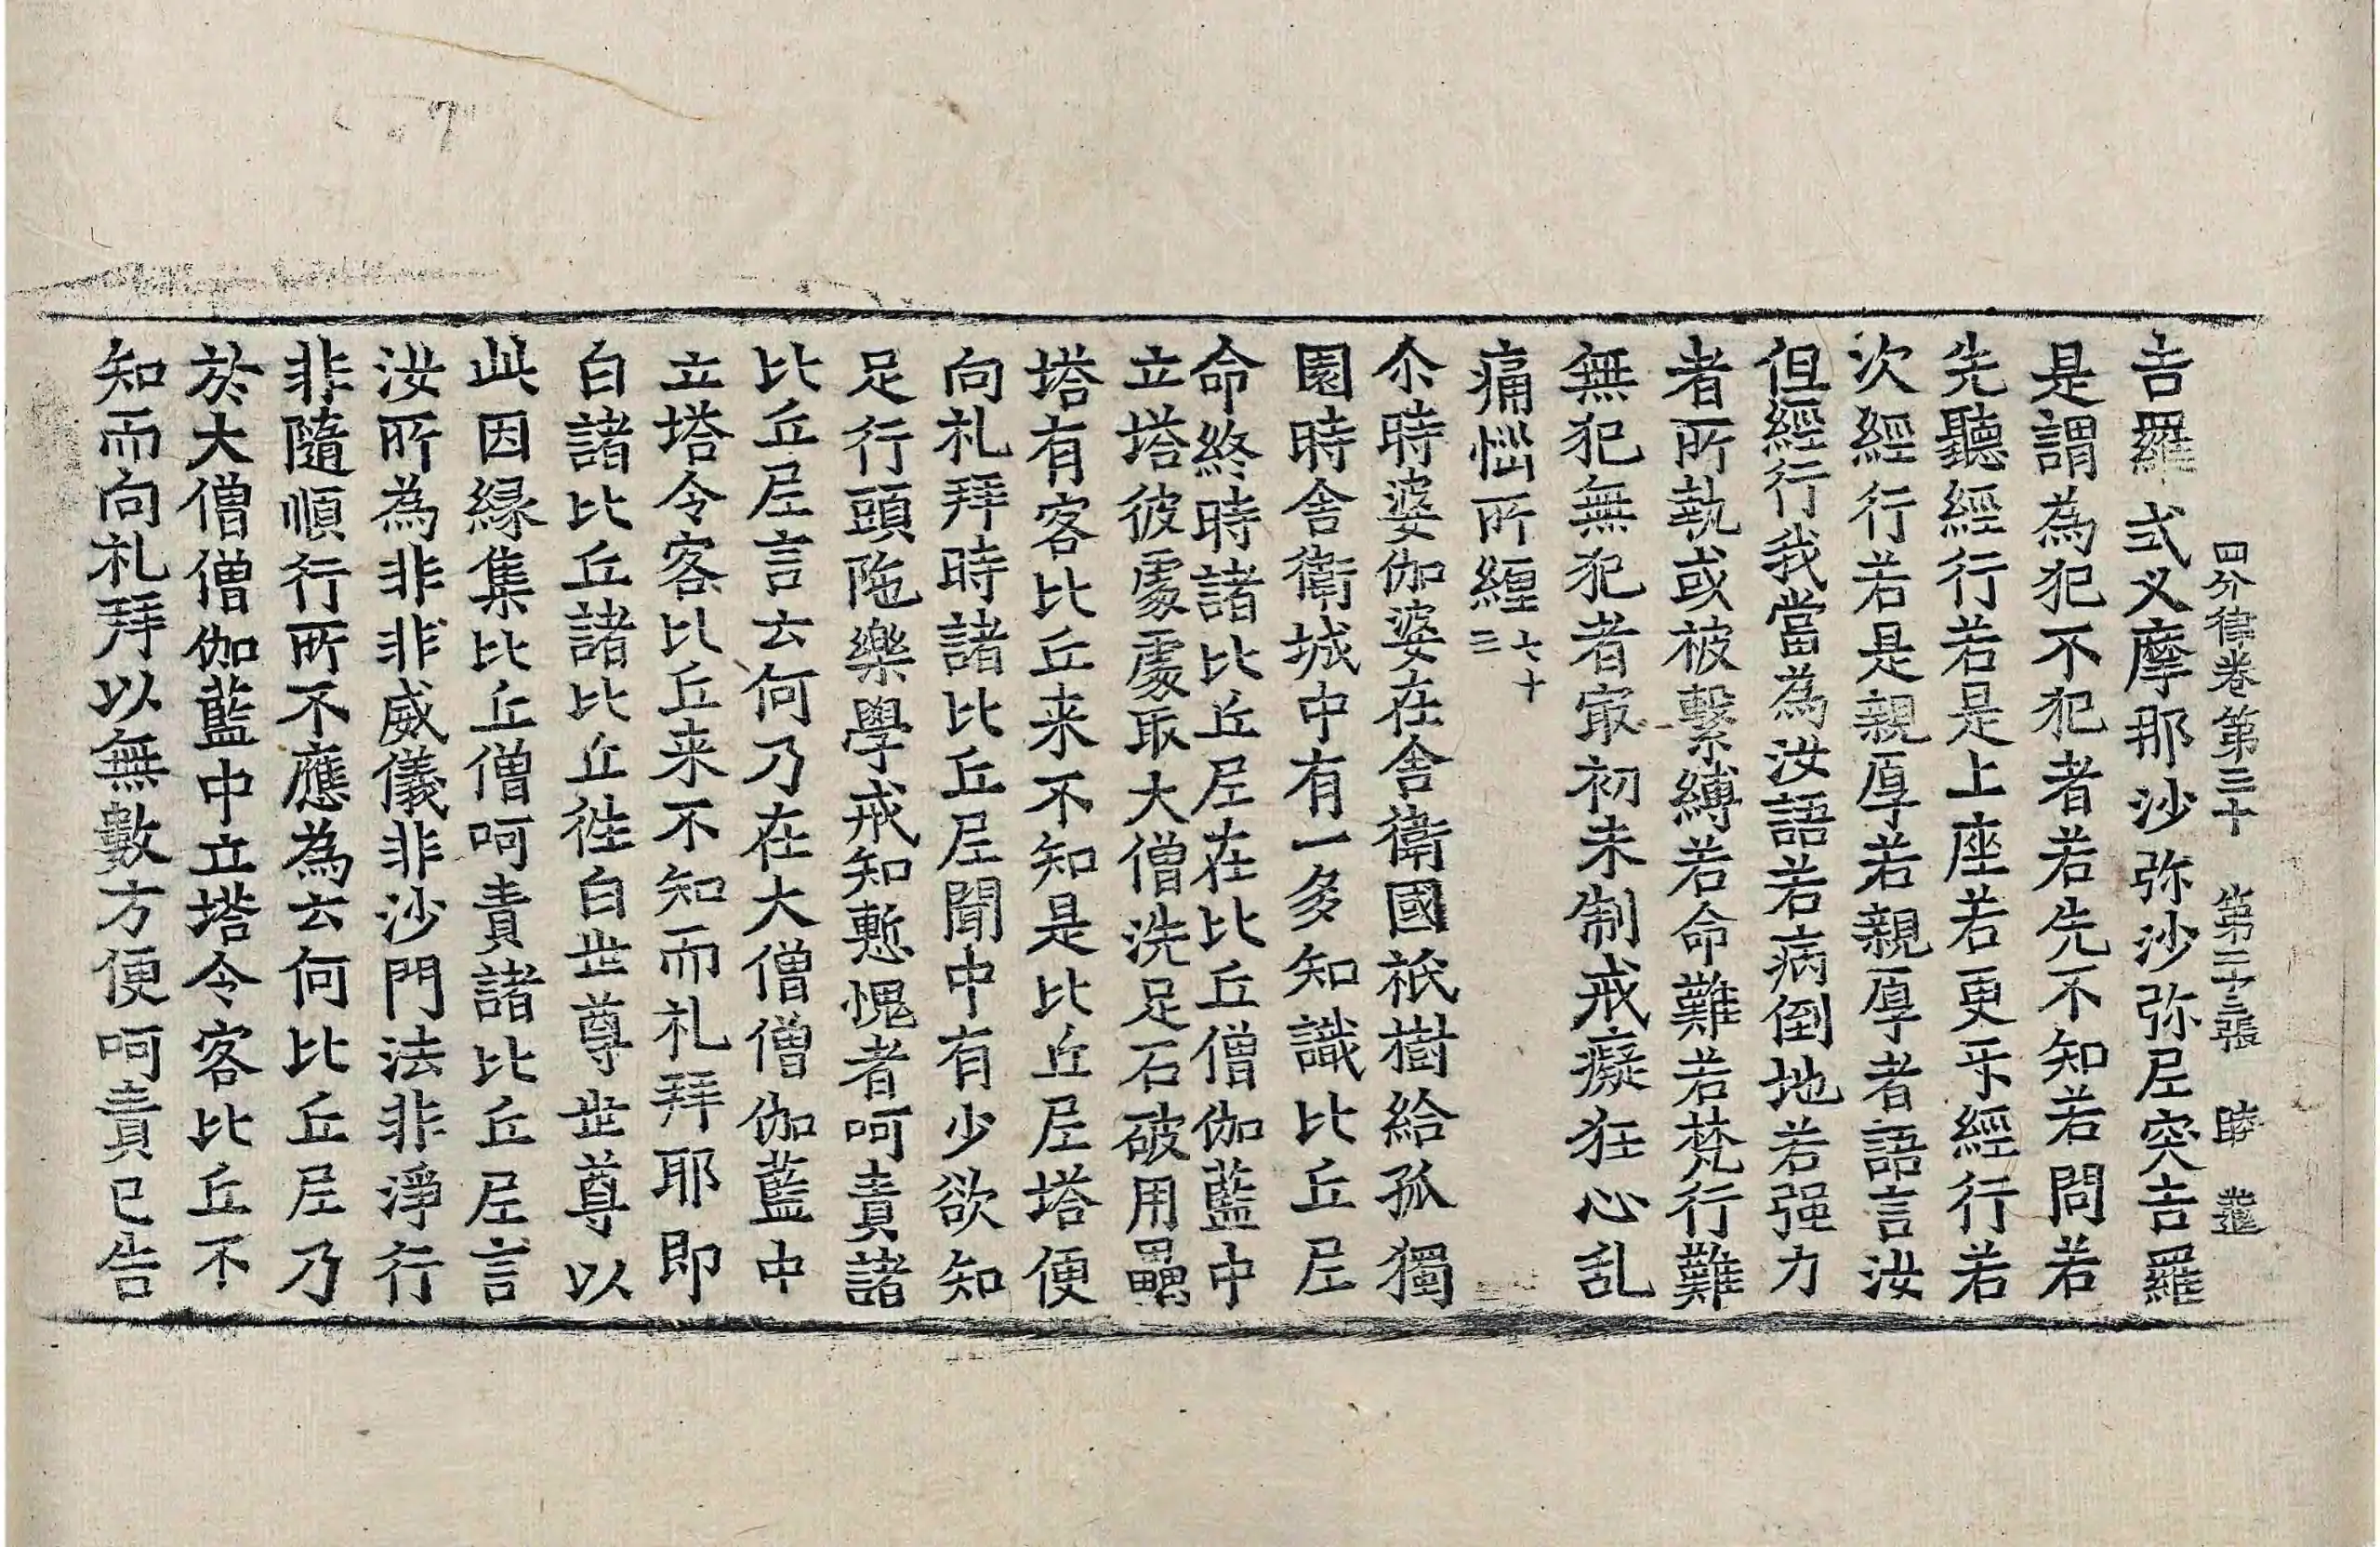 四分律卷第三十 第二十三張
吉羅式叉摩那沙弥沙弥尼突吉羅
是謂為犯不犯者若先不知若問若
先聽經行若是上座若更乎經行若
次經行若是親厚若親厚者語言汝
但經行我當為汝語若病倒地若强力
者所執或被繫縛若命難若梵行難
無犯無犯者㝡初未制戒癡狂心乱
痛惱所纏七十三
尒時婆伽婆在舍衛國祇樹給孤獨
園時舍衛城中有一多知識比丘尼
命終時諸比丘尼在比丘僧伽藍中
立塔彼處處取大僧洗足石破用壘
塔有客比丘来不知是比丘尼塔便
向礼拜時諸比丘尼聞中有少欲知
足行頭陁樂學戒知慙愧者呵責諸
比丘尼言云何乃在大僧僧伽藍中
立塔令客比丘来不知而礼拜耶即
白諸比丘諸比丘徃白世尊世尊以
此因緣集比丘僧呵責諸比丘尼言
汝所為非非威儀非沙門法非淨行
非隨順行所不應為云何比丘尼乃
於大僧僧伽藍中立塔令客比丘不
知而向礼拜以無數方便呵責已告